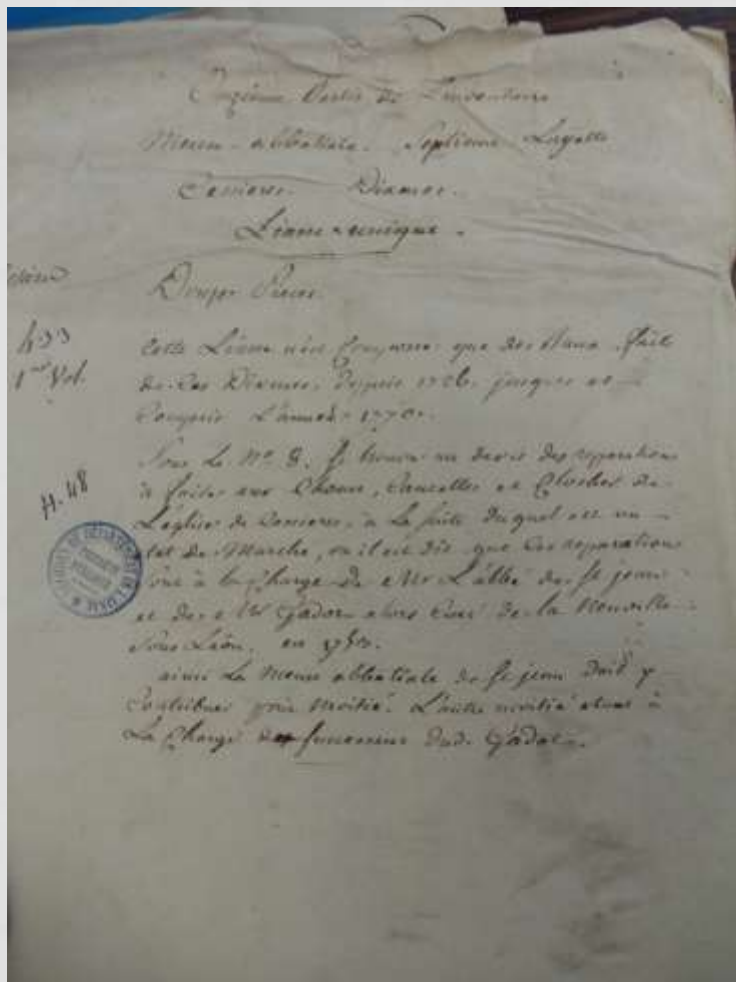 Onzieme Partie de L'inventaire
Mense abbatiale. Septieme Layette
Cessieres. Dixmes.
Liasse unique.
Douze Pieces.
433
1er Vol.
Cette Liasse n'est Composée que des Baux faits
de Ces Dixmes, depuis 1726 jusques et
Compris L'année 1770.
Sous Le No. 8. Se trouve un devis des reparations
à faire aux Choeur, Cancelles et Clocher de
L'église de Cessieres, à La suite duquel est un
état de Marché, où il est dit que Ces reparations
sont à la Charge de Mr L'abbé de St jean
et de Mr Gadot alors Curé de la Neuville
sous Laon, en
H. 48
ainsi La Mense abbatiale de St jean doit y
Contribuer pour moitié. L'autre moitié étant à
La Charge du Successeur dud. Gadot.